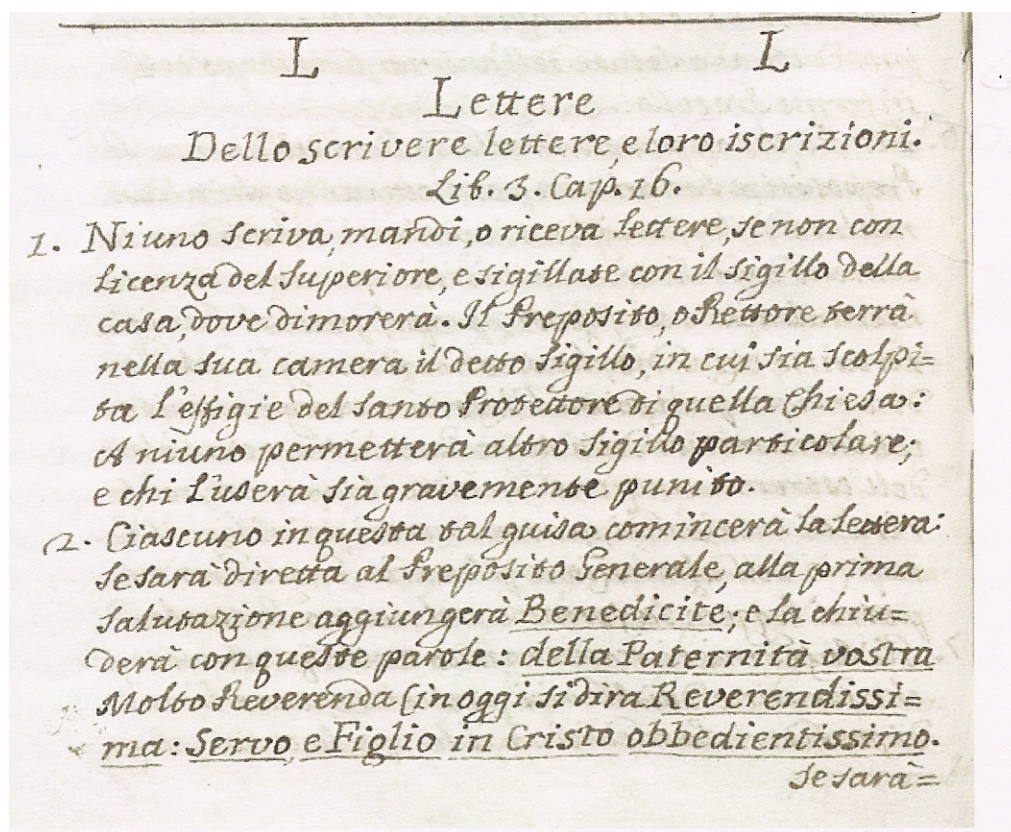 L L
Lettere
Dello scrivere lettere, e loro iscrizioni.
Lib. 3. Cap. 16.
1. Niuno scriva, mandi, o riceva lettere, se non con
licenza del Superiore, e sigillate con il sigillo della
casa, dove dimorerà. Il Preposito, o Rettore terrà
nella sua camera il detto sigillo, in cui sia scolpi=
ta l'effigie del Santo Protettore di quella Chiesa:
A niuno permetterà altro sigillo particolare;
e chi l'userà sia gravemente punito.
2. Ciascuno in questa tal guisa comincerà la lettera:
se sarà diretta al Preposito Generale, alla prima
salutazione aggiungerà Benedicite; e la chiu=
derà con queste parole: della Paternità vostra
Molto Reverenda (in oggi si dira Reverendissi=
ma: Servo, e Figlio in Cristo obbedientissimo.
se sarà=